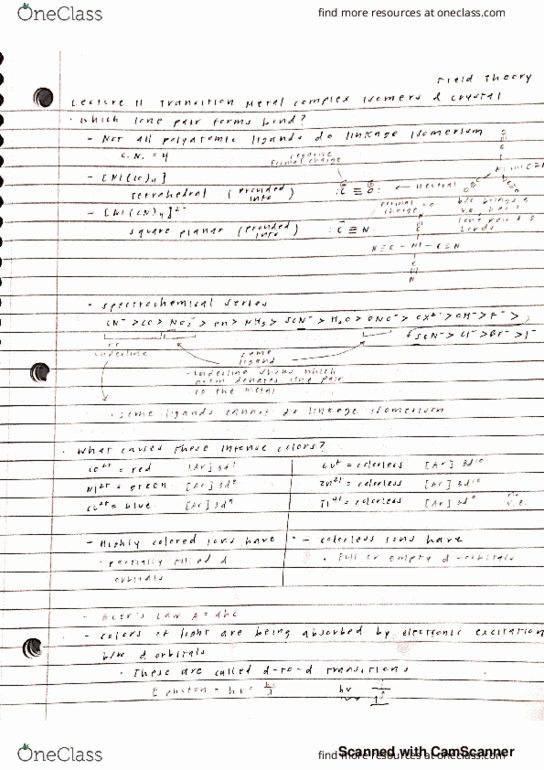 OneClass
find more resources at oneclass.com
Field Theory
Lecture 11 Transition Metal complex isomers & crystal
· which lone pair forms bond?
- Not all polyatomic ligands do linkage isomerism
C.N. = 4
negative formal charge
- [Ni(CO)4]
tetrahedral (provided info)
:C ≡ O:
← neutral
- [Ni(CN)4]2-
square planar (provided info)
:C ≡ N
formal charge
N≡C - Ni - C≡N
· spectrochemical series
CN- > CO > NO2- > en > NH3 > SCN- > H2O > ONO- > OX2- > OH- > F- >
SCN- > Cl- > Br- > I-
no underline
same ligand
- underline shows which atom donates lone pair to the metal
· some ligands cannot do linkage isomerism
· What causes these intense colors?
Co2+ = red [Ar] 3d7
Cu+ = colorless [Ar] 3d10
Ni2+ = green [Ar] 3d8
Zn2+ = colorless [Ar] 3d10
Cu2+ = blue [Ar] 3d9
Ti4+ = colorless [Ar] 3d0 no v.e.
- Highly colored ions have
- colorless ions have
· partially filled d orbitals
· Full or empty d-orbitals
- Beer's Law A = abc
- colors of light are being absorbed by electronic excitation
b/w d orbitals
· These are called d-to-d transitions
E photon = hν = hc/λ
hν
OneClass
find more resources at oneclass.com
Scanned with CamScanner